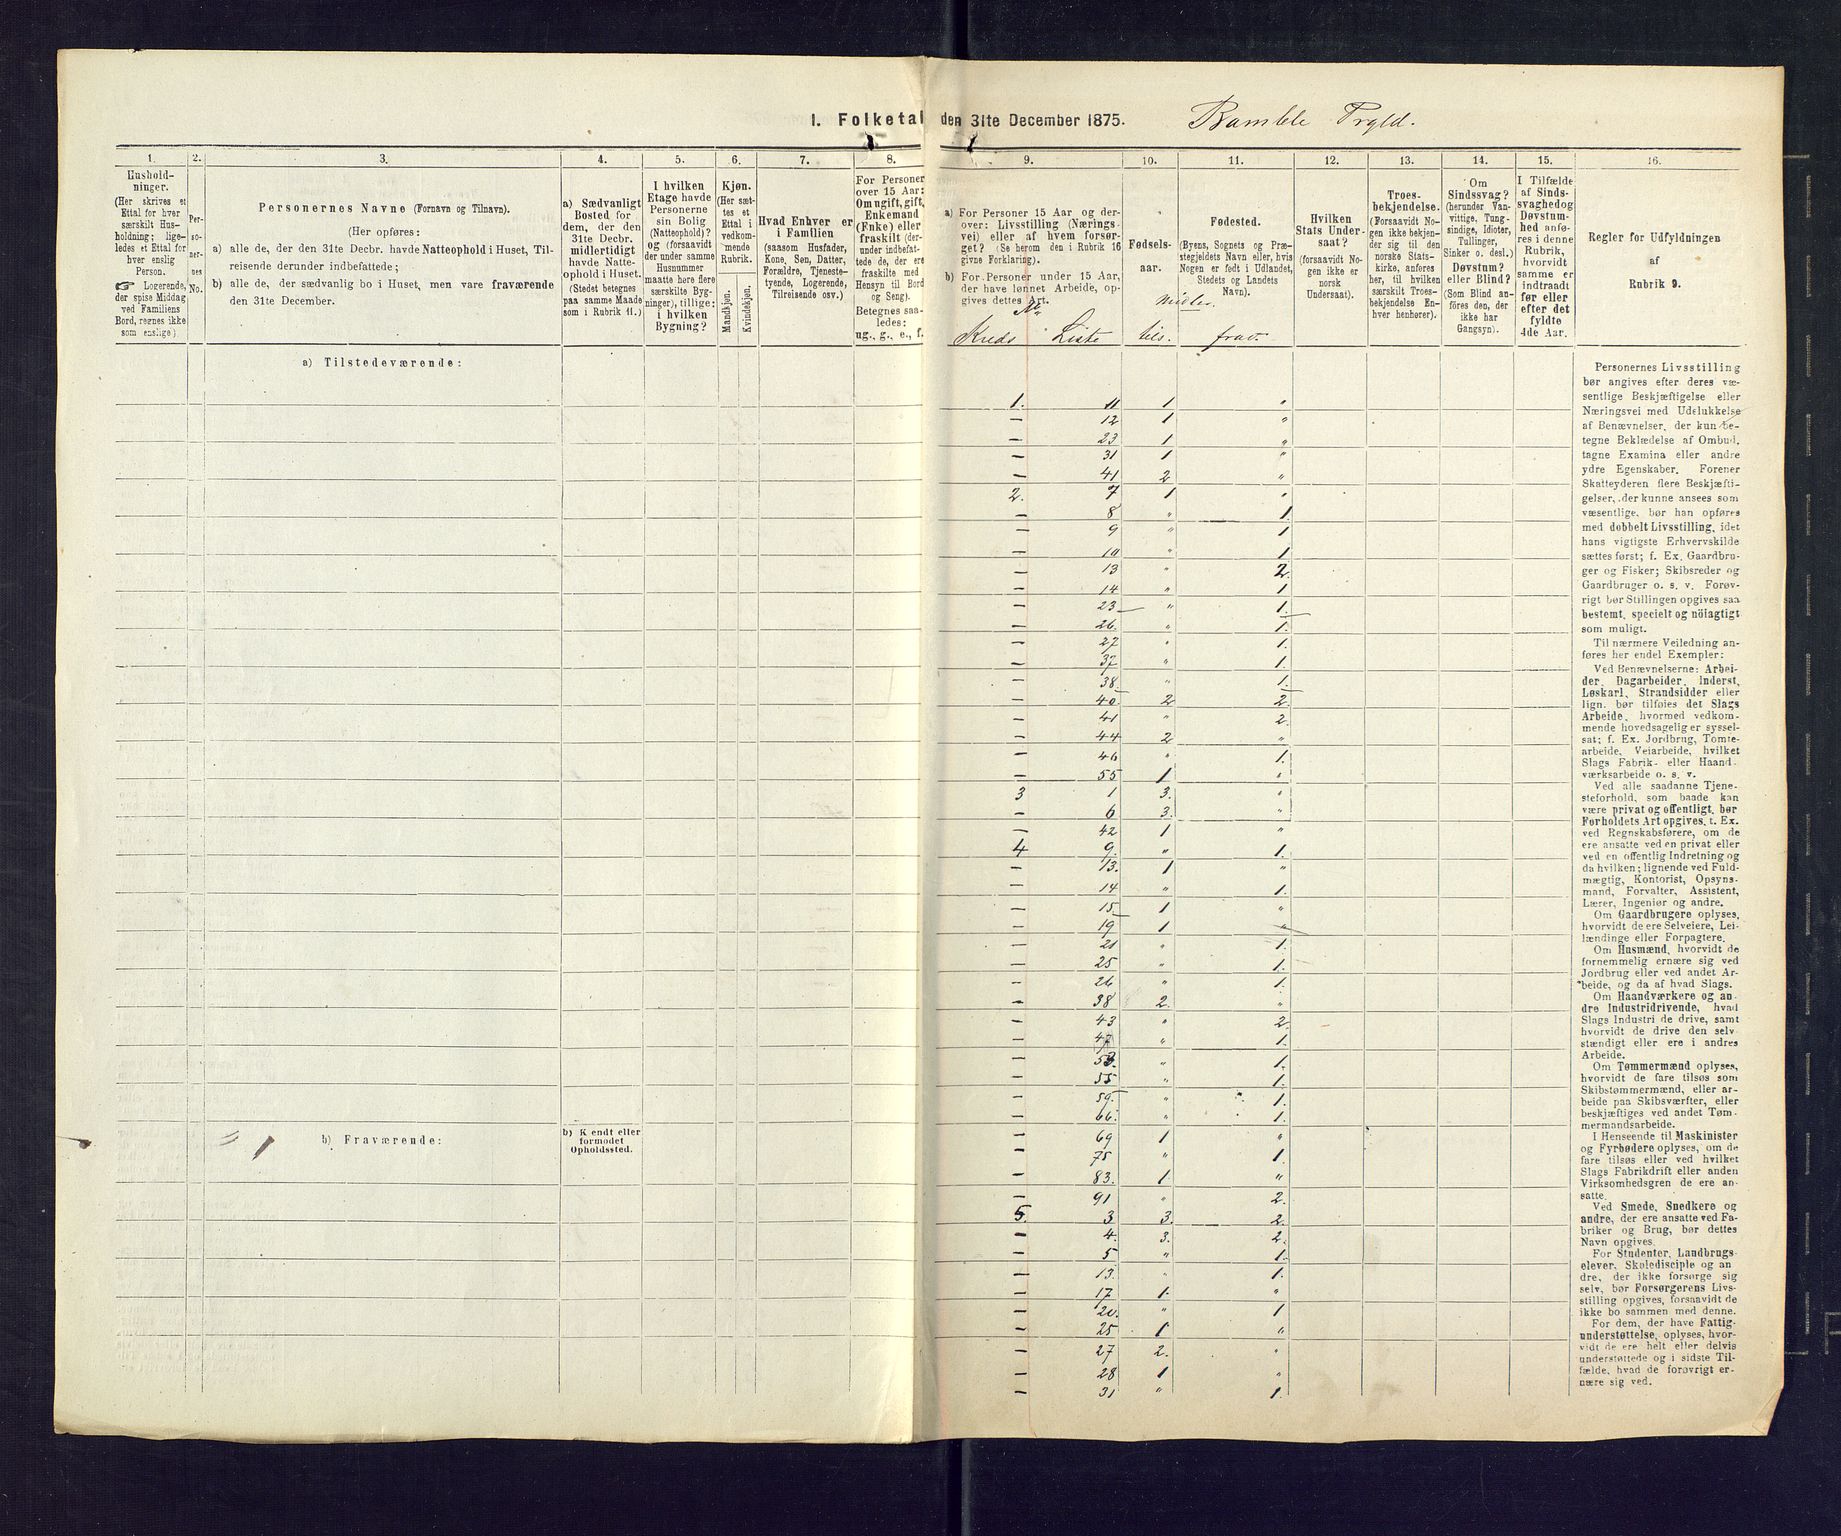 1. Folketal den 31te December 1875. Bamble Prgld.
1.
Hushold-
ninger.
(Her skrives et
Ettal for hver
særskilt Hus-
holdning; lige-
ledes et Ettal for
hver enslig
Person.
☞ Logerende,
der spise Middag
ved Familiens
Bord, regnes ikke
som enslige).
2.
Per-
so-
ner-
nes
No.
3.
Personernes Navne (Fornavn og Tilnavn).
(Her opføres:
a) alle de, der den 31te Decbr. havde Natteophold i Huset, Til-
reisende derunder indbefattede;
b) alle de, der sædvanlig bo i Huset, men vare fraværende
den 31te December.
4.
a) Sædvanligt
Bosted for
dem, der den
31te Decbr.
midlertidigt
havde Natte-
ophold i Huset.
(Stedet betegnes
paa samme Maade
som i Rubrik 11.)
5.
I hvilken
Etage havde
Personerne
sin Bolig
(Natteophold)?
og (forsaavidt
der under samme
Husnummer
maatte høre flere
særskilte Byg-
ninger), tillige:
i hvilken
Bygning?
6.
Kjøn.
(Her sæt-
tes et
Ettal i
vedkom-
mende
Rubrik.
Mandkjøn.
Kvindekjøn.
7.
Hvad Enhver er
i Familien
(saasom Husfader,
Kone, Søn, Datter,
Forældre, Tjeneste-
tyende, Logerende,
Tilreisende osv.)
8.
For Personer
over 15 Aar:
Om ugift, gift,
Enkemand
(Enke) eller
fraskilt (der-
under indbefat-
tede de, der ere
fraskilte med
Hensyn til Bord
og Seng).
Betegnes saa-
ledes:
ug., g., e., f.
9.
a) For Personer 15 Aar og der-
over: Livsstilling (Nærings-
vei) eller af hvem forsør-
get? (Se herom den i Rubrik 16
givne Forklaring).
b) For Personer under 15 Aar,
der have lønnet Arbeide, op-
gives dettes Art.
10.
Fødsels-
aar.
11.
Fødested.
(Byens, Sognets og Præ-
stegjeldets Navn eller, hvis
Nogen er født i Udlandet,
Stedets og Landets
Navn).
12.
Hvilken
Stats Under-
saat?
(forsaavidt No-
gen ikke er
norsk
Undersaat).
13.
Troes-
bekjendelse.
(Forsaavidt No-
gen ikke bekjen-
der sig til den
norske Stats-
kirke, anføres
her, til hvilken
særskilt Troes-
bekjendelse En-
hver henhører).
14.
Om
Sindssvag?
(herunder Van-
vittige, Tung-
sindige, Idioter,
Tullinger,
Sinker o. desl.)
Døvstum?
eller Blind?
(Som Blind an-
føres den, der
ikke har
Gangsyn).
15.
I Tilfælde
af Sinds-
svaghed og
Døvstum-
hed anfø-
res i denne
Rubrik,
hvorvidt
samme er
indtraadt
før eller
efter det
fyldte
4de Aar.
16.
Regler for Udfyldningen
af
Rubrik 9.
No.
midler.
Kreds Liste tils. frav.
a) Tilstedeværende:
1. 11 1 "
— 12 1 "
— 23 1 "
— 31 1 "
— 41 2 "
2. 7 1 "
— 8 " 1.
— 9 " 1
— 10 " 1
— 13 " 2.
— 14 " 1
— 23 " 1.
— 26. " 1.
— 27 " 1.
— 37 " 1.
— 38. " 1.
— 40. 2 2.
— 41 " 2.
— 44 2 "
— 46 " 1.
— 55 1 "
3 1 3. "
— 6 3. "
— 42 1 "
4 9. " 1.
— 13. 1 "
— 14 " 1.
— 15. 1 "
— 19 1 "
— 21 " 1.
— 25 " 1.
— 26 " 1.
— 38 2. "
— 43 " 2.
— 47 " 1.
— 53. " 1.
— 55 " 1.
— 59. " 1.
— 66. " 1.
— 69 1 "
— 75 " 1.
— 83. 1. "
— 91 " 2.
5. 3 3. 2.
— 4. 3. 2.
— 5 " 1.
— 13. " 1.
— 17 1. "
— 20. " 1
— 25 1 "
— 27 2. "
— 28 1 "
— 31 " 1.
b) Fraværende:
b) Kjendt eller
formodet
Opholdssted.
Personernes Livsstilling
bør angives efter deres væ-
sentlige Beskjæftigelse eller
Næringsvei med Udelukkelse
af Benævnelser, der kun be-
tegne Beklædelse af Ombud,
tagne Examina eller andre
ydre Egenskaber. Forener
Skatteyderen flere Beskjæfti-
gelser, der kunne ansees som
væsentlige, bør han opføres
med dobbelt Livsstilling, idet
hans vigtigste Erhvervskilde
sættes først; f. Ex. Gaardbru-
ger og Fisker; Skibsreder og
Gaardbruger o. s. v. Forøv-
rigt bør Stillingen opgives saa
bestemt, specielt og nöiagtigt
som muligt.
Til nærmere Veiledning an-
føres her endel Exempler:
Ved Benævnelserne: Arbei-
der, Dagarbeider, Inderst,
Løskarl, Strandsidder eller
lign. bør tilføies det Slags
Arbeide, hvormed vedkom-
mende hovedsagelig er syssel-
sat; f. Ex. Jordbrug, Tomte-
arbeide, Veiarbeide, hvilket
Slags Fabrik- eller Haand-
værksarbeide o. s. v.
Ved alle saadanne Tjene-
steforhold, som baade kan
være privat og offentligt, bør
Forholdets Art opgives, t. Ex.
ved Regnskabsførere, om de
ere ansatte ved en privat eller
ved en offentlig Indretning og
da hvilken; lignende ved Fuld-
mægtig, Kontorist, Opsyns-
mand, Forvalter, Assistent,
Lærer, Ingeniør og andre.
Om Gaardbrugere oplyses,
hvorvidt de ere Selveiere, Lei-
lændinge eller Forpagtere.
Om Husmænd, hvorvidt de
fornemmelig ernære sig ved
Jordbrug eller ved andet Ar-
beide, og da af hvad Slags.
Om Haandværkere og an-
dre Industridrivende, hvad
Slags Industri de drive, samt
hvorvidt de drive den selv-
stændigt eller ere i andres
Arbeide.
Om Tømmermænd oplyses,
hvorvidt de fare tilsøs som
Skibstømmermænd, eller ar-
beide paa Skibsværfter, eller
beskjæftiges ved andet Tøm-
mermandsarbeide.
I Henseende til Maskinister
og Fyrbødere oplyses, om de
fare tilsøs eller ved hvilket
Slags Fabrikdrift eller anden
Virksomhedsgren de ere an-
satte.
Ved Smede, Snedkere og
andre, der ere ansatte ved Fa-
briker og Brug, bør dettes
Navn opgives.
For Studenter, Landbrugs-
elever, Skoledisciple og an-
dre, der ikke forsørge sig
selv, bør Forsørgerens Livs-
stilling opgives, forsaavidt de
ikke bo sammen med denne.
For dem, der have Fattig-
understøttelse, oplyses, hvor-
vidt de ere helt eller delvis
understøttede og i sidste Til-
fælde, hvad de forøvrigt er-
nære sig ved.